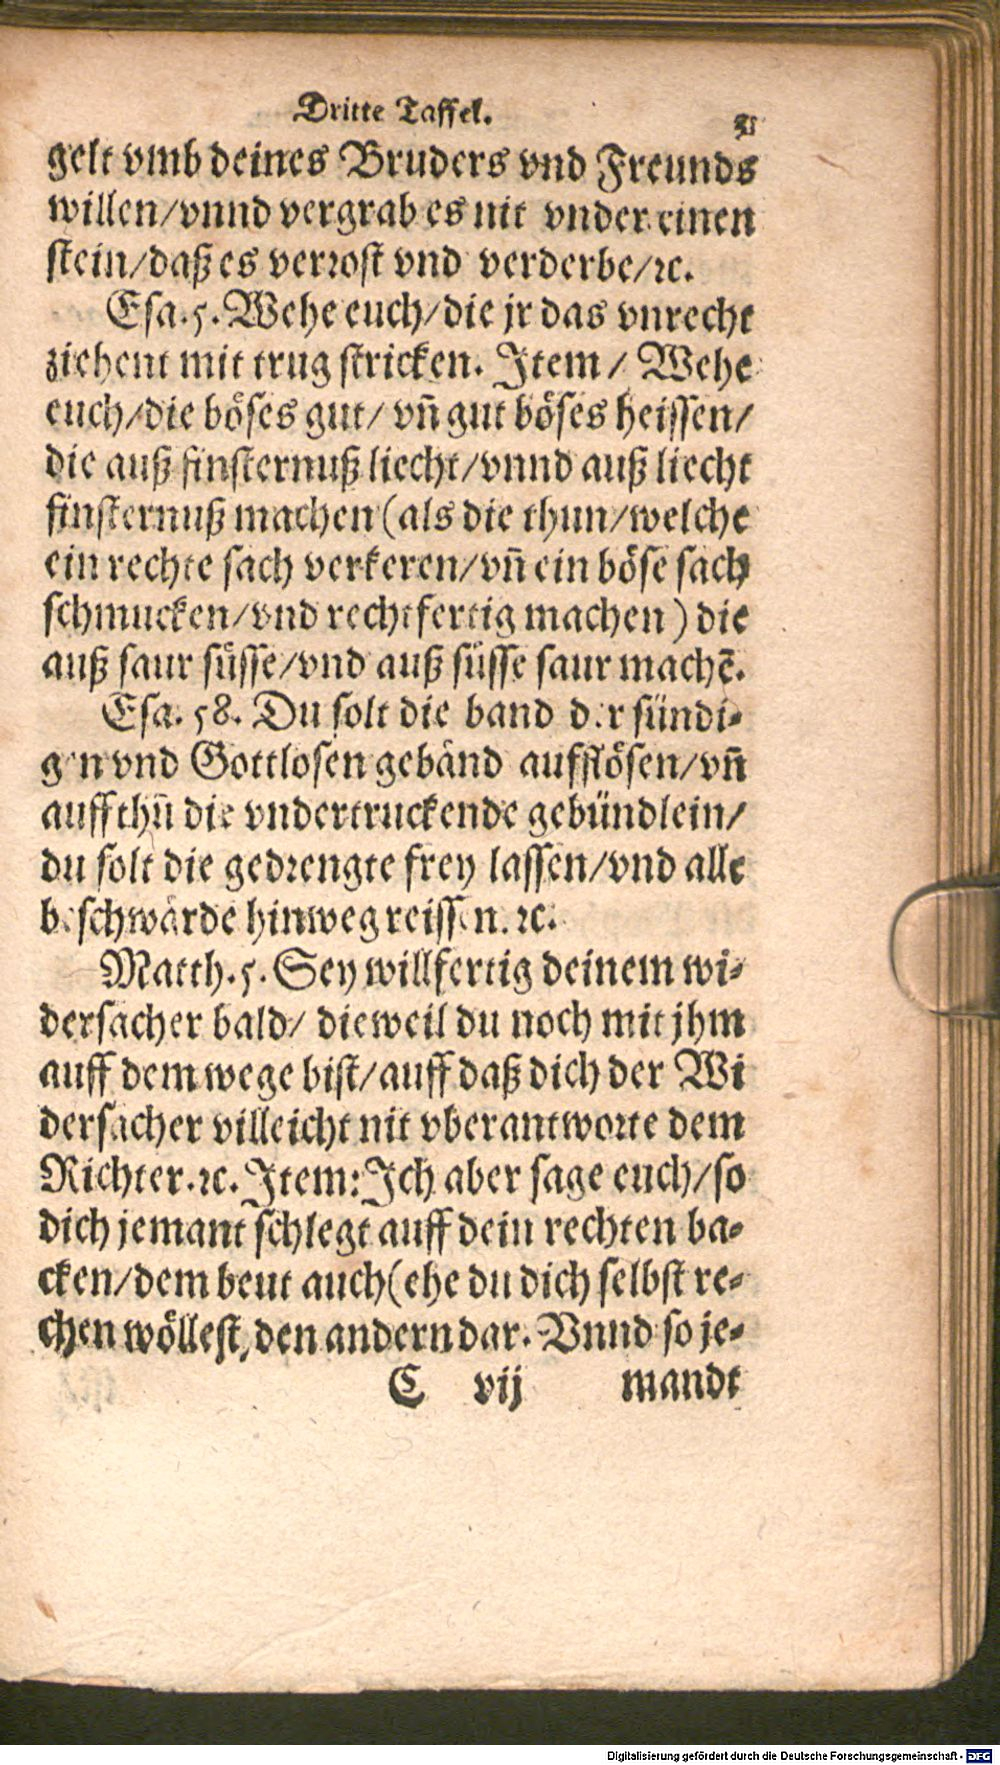 Dritte Taffel.
gelt vmb deines Bruders vnd Freunds
willen/vnnd vergrab es nit vnder einen
stein/daß es verrost vnd verderbe/ꝛc.
Esa.5. Wehe euch/die jr das vnrecht
ziehent mit trug stricken. Item/ Wehe
euch/die böses gut/ vñ gut böses heissen/
die auß finsternuß liecht/vnnd auß liecht
finsternuß machen (als die thun/welche
ein rechte sach verkeren/vñ ein böse sach
schmucken/vnd rechtfertig machen) die
auß saur süsse/vnd auß süsse saur machẽ.
Esa. 58. Du solt die band der sündi-
gen vnd Gottlosen gebänd aufflösen/vñ
auffthũ die vndertruckende gebündlein/
du solt die gedrengte frey lassen/vnd alle
beschwärde hinweg reissen. ꝛc.
Matth.5. Sey willfertig deinem wi-
dersacher bald/ dieweil du noch mit jhm
auff dem wege bist/auff daß dich der Wi
dersacher villeicht nit vberantworte dem
Richter.ꝛc. Item: Ich aber sage euch/so
dich jemant schlegt auff dein rechten ba-
cken/dem beut auch (ehe du dich selbst re-
chen wöllest, den andern dar. Vnnd so je-
C vij mandt
Digitalisierung gefördert durch die Deutsche Forschungsgemeinschaft - DFG